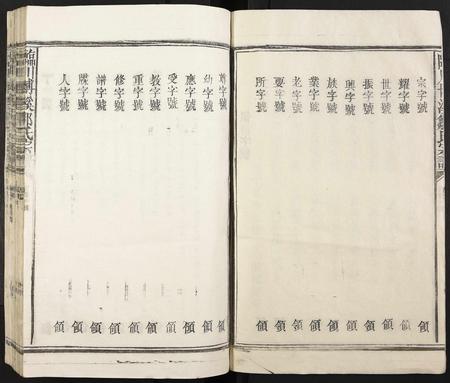 宗字號 領
耀字號 領
世字號 領
振字號 領
興字號 領
族字號 領
業字號 領
老字號 領
要字號 領
所字號 領
尊字號 領
幼字號 領
應字號 領
受字號 領
教字號 領
重字號 領
修字號 領
譜字號 領
牒字號 領
人字號 領
臨川